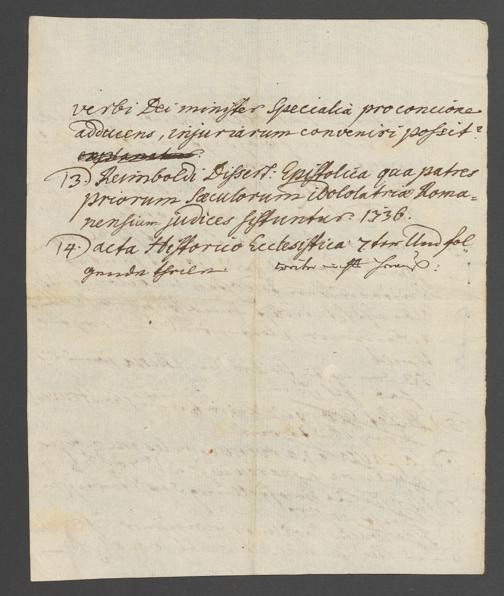 verbi Dei minister specialia pro concione
adducens, injuriarum conveniri possit?
explanatur.
13.) Reimboldi Dissert: Epistolica qua patres
priorum sæculorum idololatriæ Roma=
nensium judices sistuntur. 1736.
14.) acta Historico Ecclesistica 7ter Und fol=
gende theile.